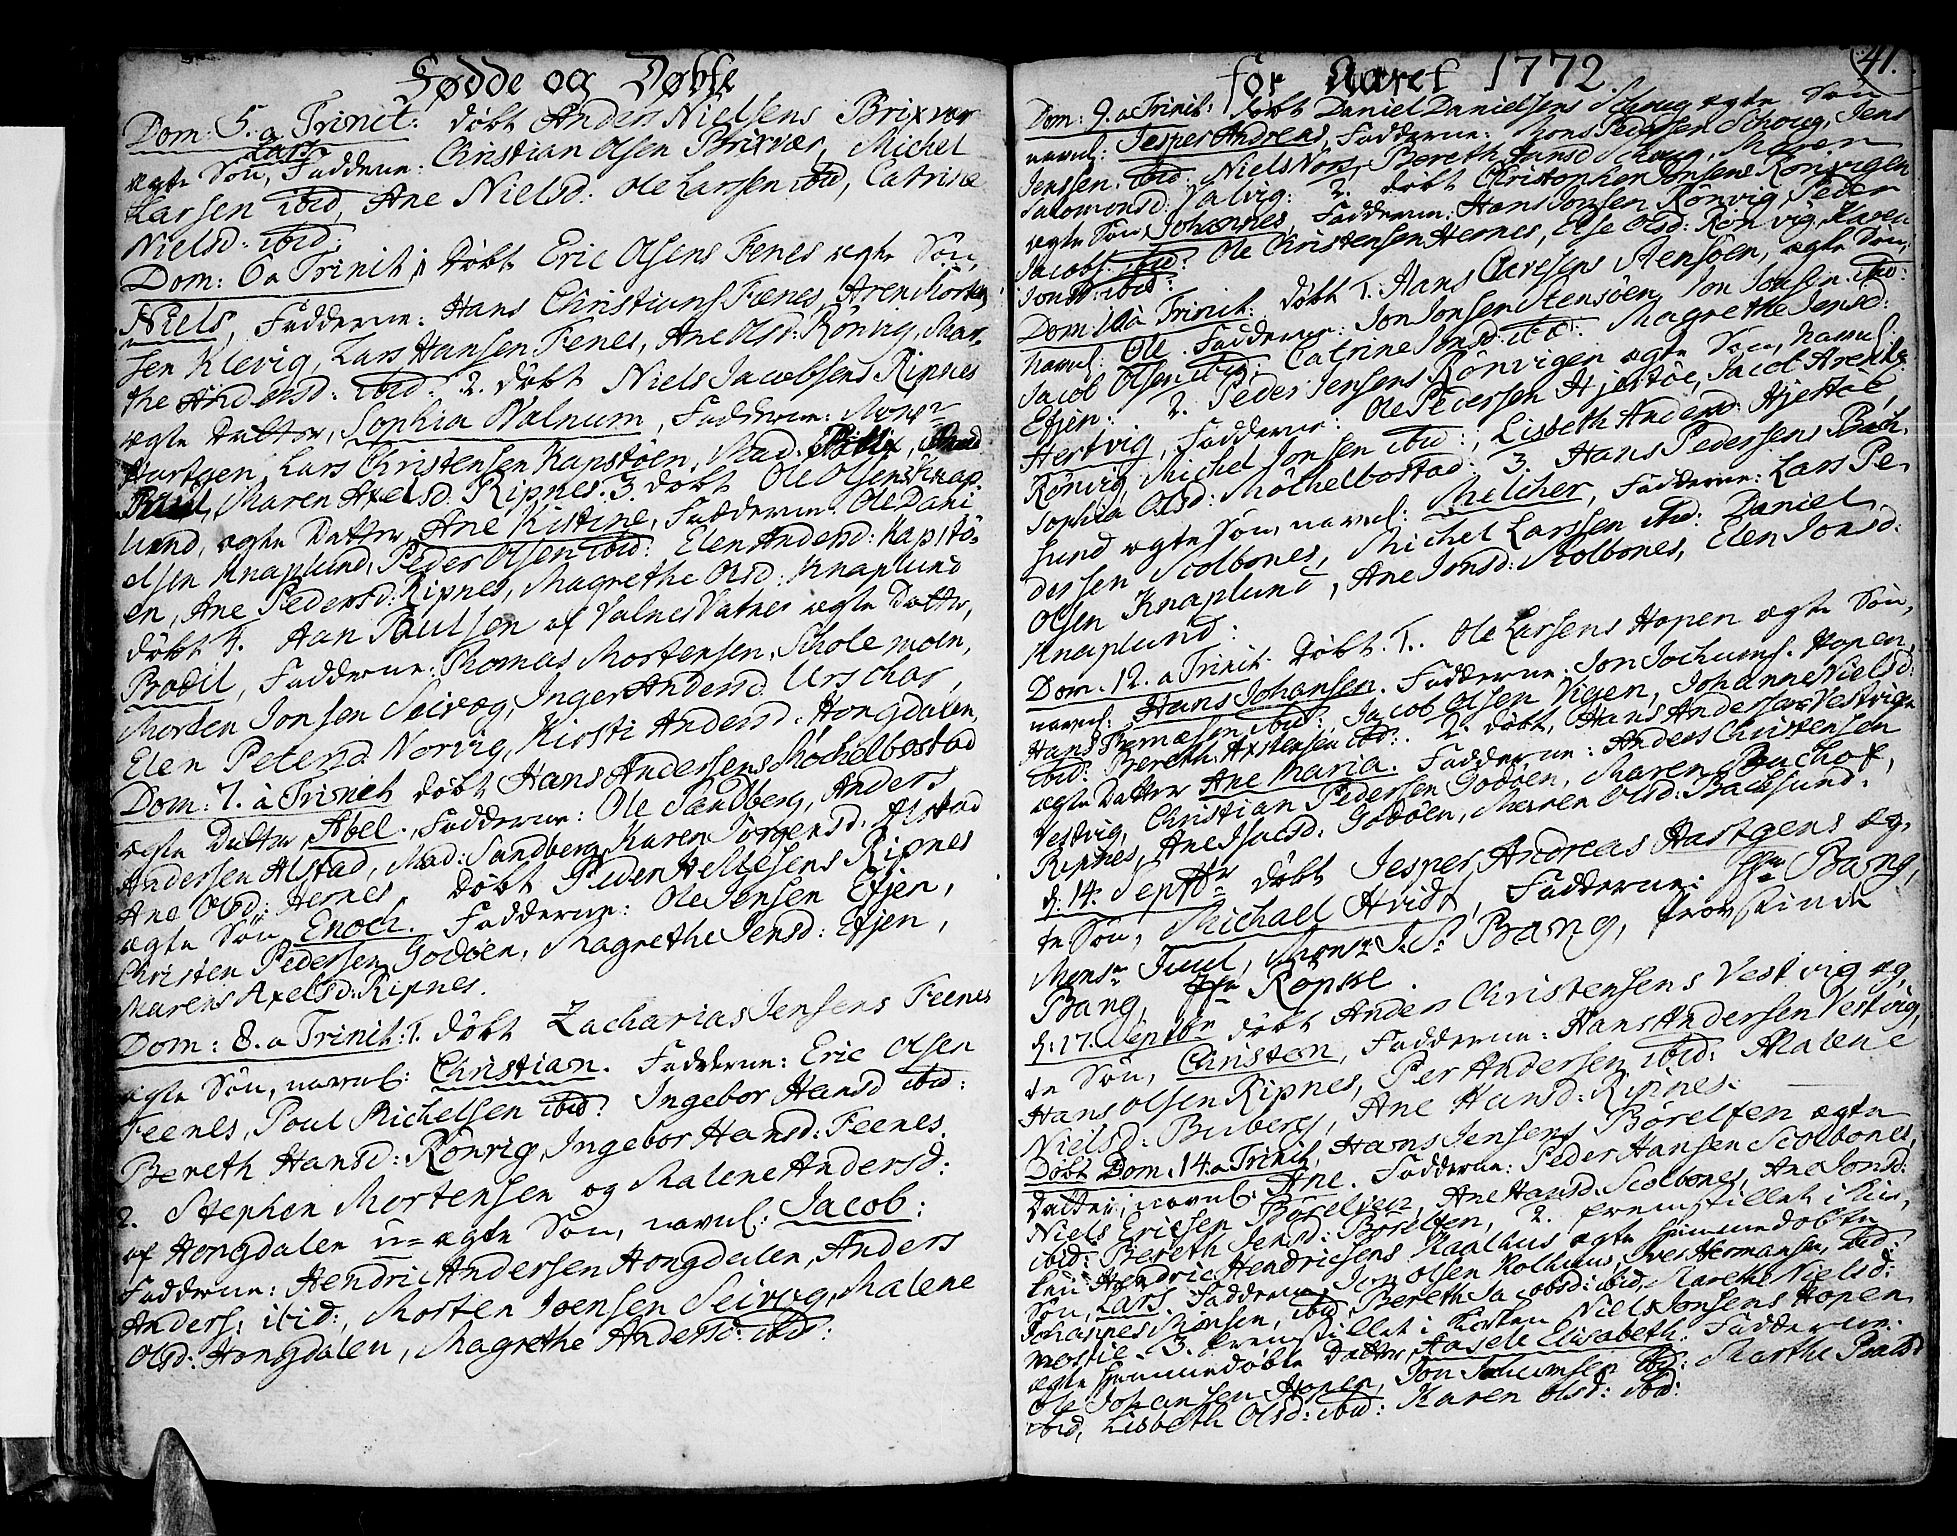 Fødde og Døbte
Dom: 5. a Trinit: døbt Anders Nielsens Brixvær
ægte Søn, Lars, Fadderne: Christian Olsen Brixvær, Michel
Larsen ibid, Ane Nielsd: Ole Larsen ibid, Catrine
Nielsd: ibid:
Dom: 6 a Trinit: døbt Eric Olsens Fenes ægte Søn,
Niels, Fadderne: Hans Christians Fænes, Aren Morten
sen Klevig, Lars Hansen Fenes, Ane Olsd: Rönvig, Mar-
the Andersd: ibid: 2. døbt Niels Jacobsens Ripnes
ægte Datter, Sophia Valnum, Fadderne: Monsr
Hartgen, Lars Christensen Kapstøen, Mad.
Maren Axelsd Ripnes. 3. døbt Ole Olsens Knap
lund, ægte Datter, Ane Kistine, Fadderne: Ole Dani
elsen Knaplund, Peder Olsen ibid: Elen Andersd: Kapstö-
en, Ane Pedersd: Ripnes, Magrethe Olsd: Knaplund
døbt 4. Aan Paulsen af Valnes Vatnes ægte Datter,
Bodil, Fadderne: Thomas Mortensen, Schole moen,
Morten Jonsen Seivog, Inger Andersd. Urschar,
Elen Petersd Norvig, Kirsti Andersd: Hongdalen,
Dom: 7. a Trinit døbt Hans Andersens Möchelbostad
ægte Datter, Abel, Fadderne: Ole Sandberg, Anders
Andersen Alstad, Mad: Sandberg, Karen Jörgensd. Alstad
Ane Olsd: Hernes. døbt Peder Heltesens Ripnes
ægte Søn Enoch. Fadderne: Ole Jensen Efjen,
Christen Pedersen Godöen, Magrethe Jensd: Efjen,
Marens Axelsd: Ripnes.
Dom: 8. a Trinit: 1. døbt Zacharias Jensens Feenes
ægte Søn, navnl: Christian. Fadderne: Eric Olsen
Feenes, Poul Michelsen ibid: Ingebor Hansd ibid:
Bereth Hansd: Rönvig, Ingebor Hansd: Feenes.
2. Stephen Mortensen og Malene Andersd:
af Hongdalen u-ægte Søn, navnl: Jacob:
Fadderne: Hendric Andersen Hongdalen, Anders
Anders: ibid:, Morten Joensen Seivog, Malene
Olsd: Hongdalen, Magrethe Andersd: ibid:
for Aaret 1772.
41.
Dom: 9. a Trinit: døbt Daniel Danielsens Schoug ægte Søn
navnl: Jesper Andreas, Fadderne: Mons Pedersen Schoug, Jens
Jenssen ibid: Niels Nors, Bereth Hansd Schoug, Maren
Salomonsd: Valvig: 2. døbt Christopher Jonsens Rönvigen
ægte Søn, Johannes, Fadderne: Hans Jonsen Rönvig, Peder
Jacobs. ibid: Ole Christensen Hernes, Else Olsd: Rönvig, Karen
Jonsd: ibid:
Dom: 10 a Trinit: døbt 1. Hans Claresens Stensöen, ægte Søn,
navnl: Ole. Fadderne: Jon Jonsen Stensöen, Jon Jonsen ibid:
Jacob Olsen ibid: Catrine Jonsd: ibid: Magrethe Jensd:
Efjen: 2. Peder Jensens Rönvigen ægte Søn, navnl:
Hertvig, Fadderne: Ole Pedersen Hjertöe, Jacob Arentz:
Rönvig, Michel Jonsen ibid:, Lisbeth Andersd: Hjertöe,
Sophia Olsd: Möchelbostad: 3. Hans Pedersens Bach-
sund ægte Søn, navnl: Melcher, Fadderne: Lars Pe-
dersen Scolbones, Michel Larssen ibid: Daniel
Olsen Knaplund, Ane Jonsd: Scolbones, Elen Jonsd:
Knaplund:
Dom. 12. a Trinit. døbt. 1. Ole Larsens Hopen ægte Søn,
navnl: Hans Johansen. Fadderne: Jon Jochums. Hopen,
Hans Thomæsen ibid: Jacob Olsen Vigen, Johanne Nielsd:
ibid: Bereth Axstensen ibid: 2. døbt, Hans Andersens Vestvigs
ægte Datter Ane Maria. Fadderne: Anders Christensen
Vestvig, Christian Pedersen Godöen, Maren Buchof,
Ripnes, Ane Isacsd: Godöen, Maren Olsd: Bachsund.
d: 14. Septbr døbt Jesper Andreas Hartgens æg-
te Søn, Michael Hvidt, Fadderne: Hr Bang,
Monsr Juul, Monsr J. S. Bang, Provstinde
Bang, Röpke.
d: 17. Septbr døbt Anders Christensens Vestvig æg-
te Søn, Christen, Fadderne: Hans Andersen Vestvig,
Hans Olsen Ripnes, Per Andersen ibid: Malene
Nielsd: Buberg, Ane Hansd: Ripnes.
Døbt Dom. 14. a Trinit, Hans Jensens Börelfen ægte
Datter, navnl. Ane. Fadderne: Peder Hansen Scolbones,
Niels Ericsen Börelven, Ane Hansd: Scolbones, Ane Jonsd:
ibid: Bereth Jensd: Börelfen, 2. fremstillet i Kir-
ken Hendric Hendricsens Kaalhus ægte hjemmedøbte
Søn, Lars. Fadderne, Jon Olsen Kolhuus, Iver Hermansen, ibid:
Johannes Monsen, ibid, Bereth Jacobsd: ibid, Marethe Nielsd:
3. fremstillet i Kirken Niels Jonsens Hopen
ægte hjemmedøbte Datter, Elisabeth. Fadderne:
Ole Johansen Hopen, Jon Jochumsen ibid: Marthe Paalsd
ibid, Lisbeth Olsd: ibid: Karen Olsd: ibid: